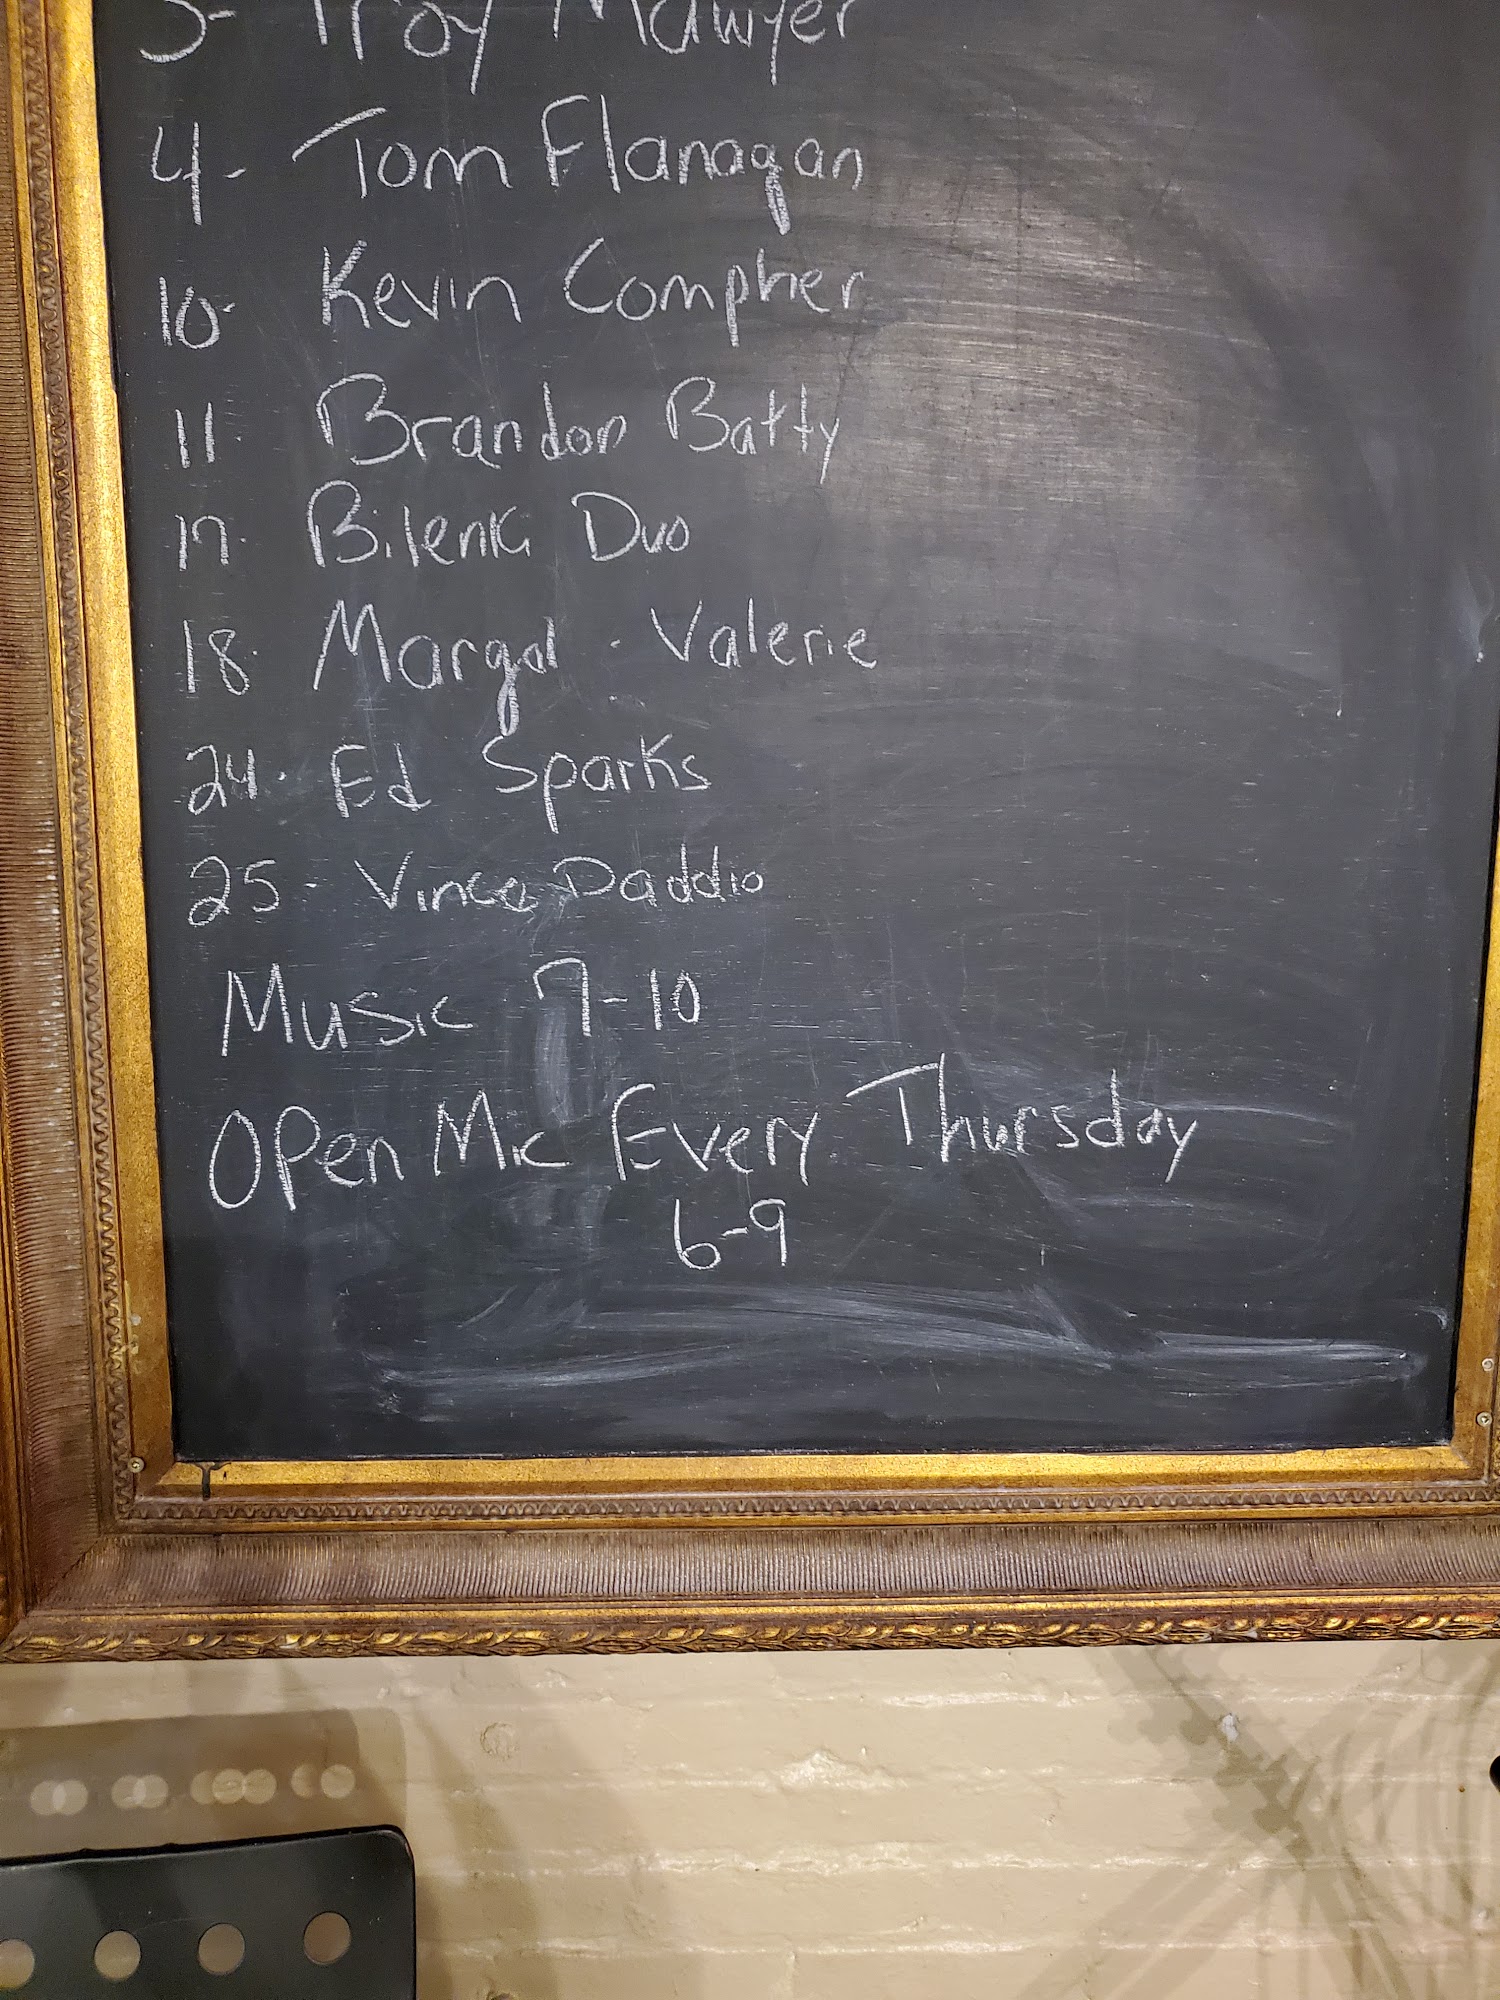 3- Troy Mawyer
4- Tom Flanagan
10- Kevin Compher
11- Brandon Batty
17- Bilenki Duo
18- Margot - Valerie
24- Ed Sparks
25- Vince Daddio
Music 7-10
Open Mic Every Thursday
6-9